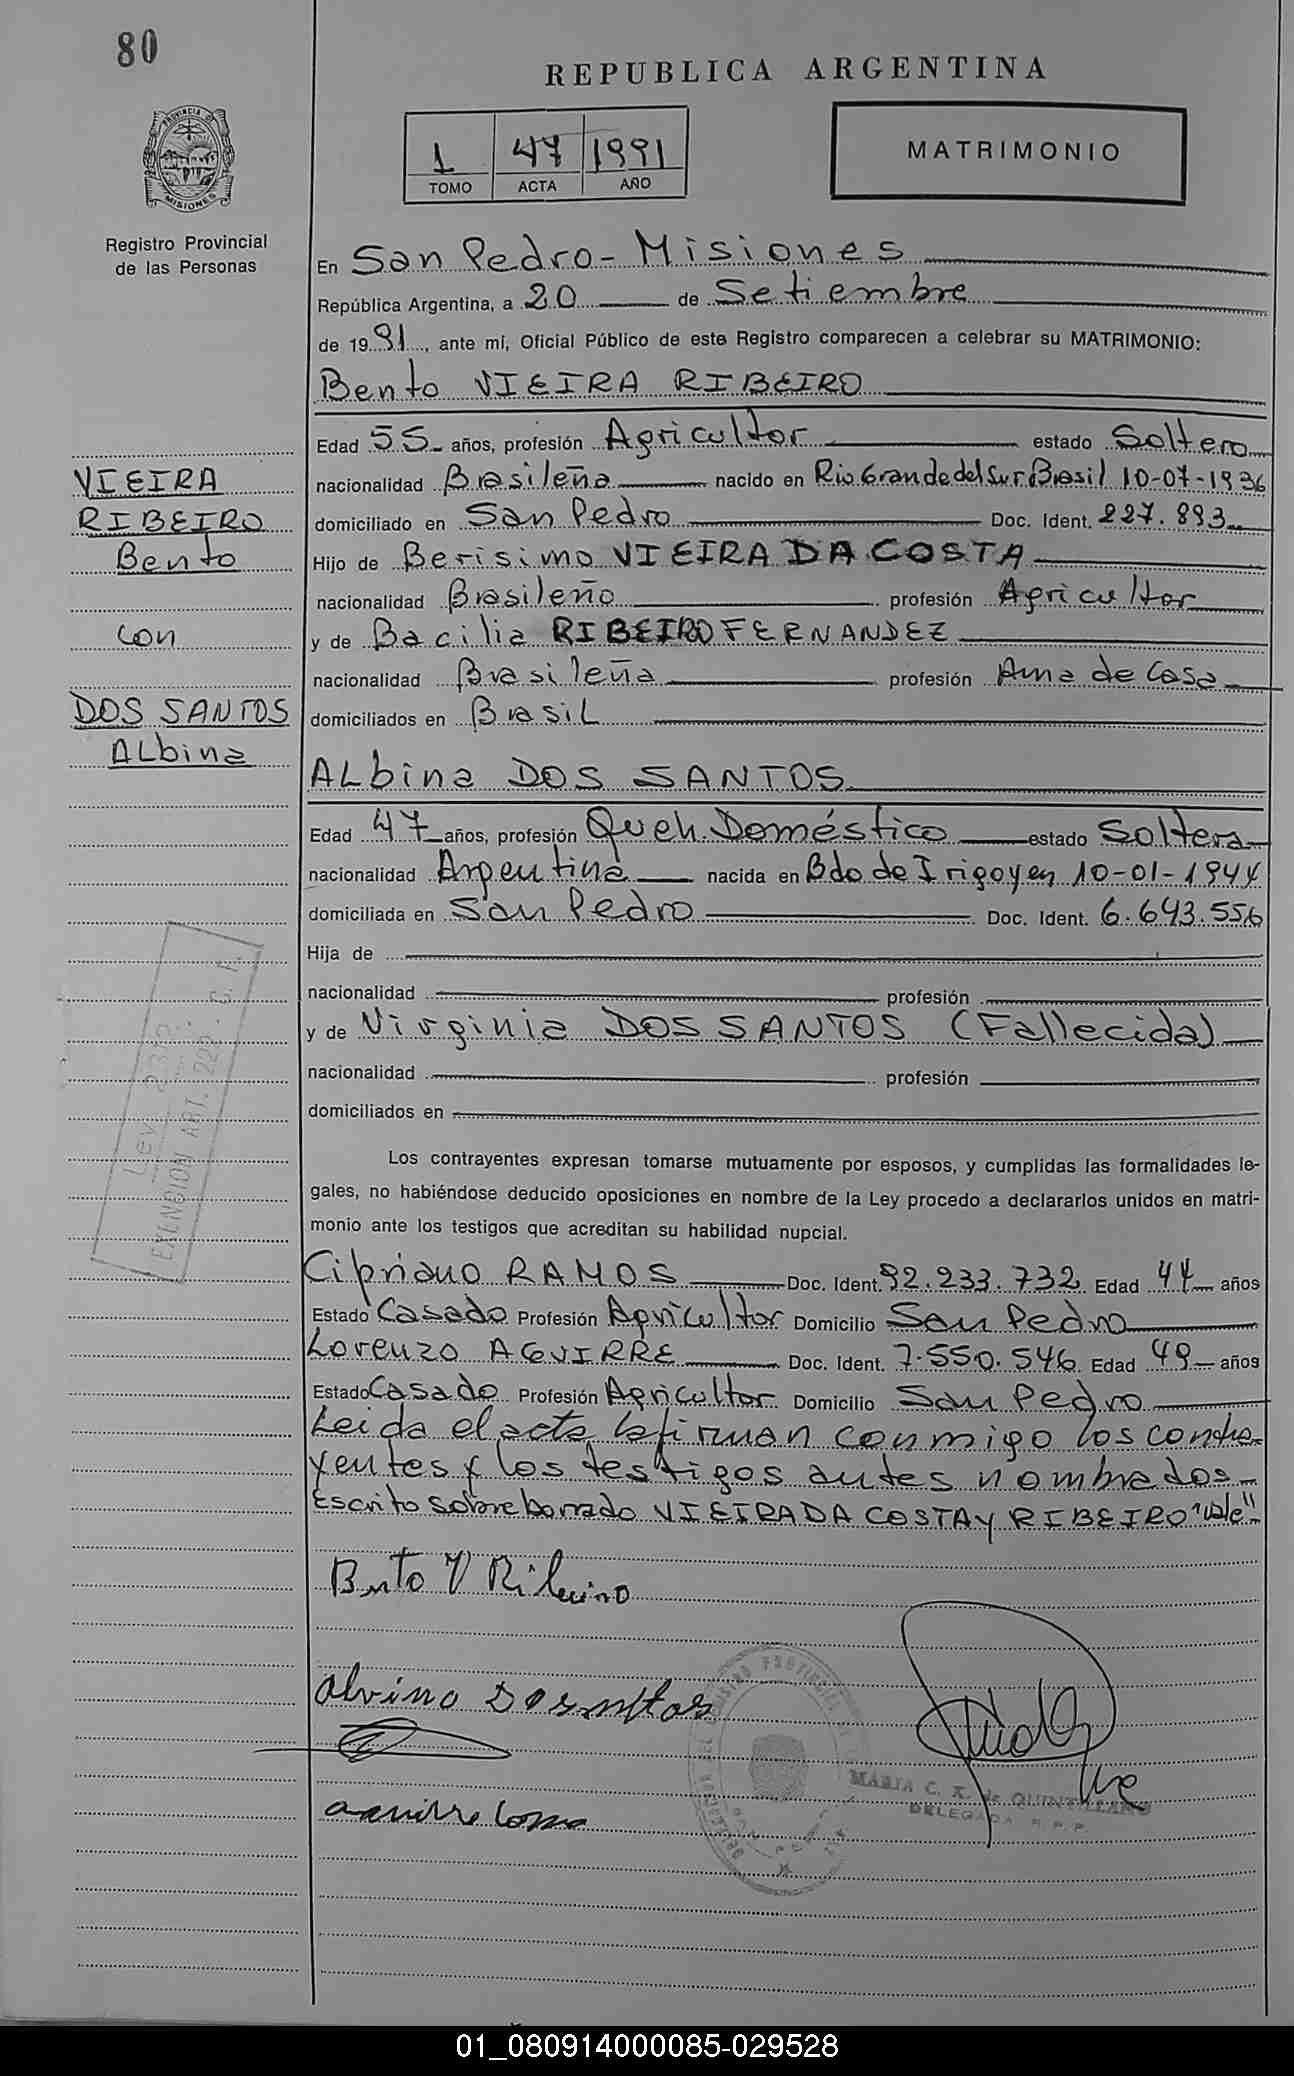 80
REPUBLICA ARGENTINA
PROVINCIA DE
MISIONES
1 47 1991
TOMO ACTA AÑO
MATRIMONIO
Registro Provincial
de las Personas
En San Pedro - Misiones
República Argentina, a 20 de Setiembre
de 19 91, ante mí, Oficial Público de este Registro comparecen a celebrar su MATRIMONIO:
Bento VIEIRA RIBEIRO
Edad 55 años, profesión Agricultor estado Soltero
nacionalidad Brasileña nacido en Rio Grande del Sur Brasil 10-07-1936
domiciliado en San Pedro Doc. Ident. 227.893
Hijo de Berisimo VIEIRA DA COSTA
nacionalidad Brasileño profesión Agricultor
y de Bacilia RIBEIRO FERNANDEZ
nacionalidad Brasileña profesión Ama de Casa
domiciliados en Brasil
VIEIRA
RIBEIRO
Bento
con
DOS SANTOS
ALbina
ALbina DOS SANTOS
Edad 47 años, profesión Queh. Doméstico estado Soltera
nacionalidad Argentina nacida en Bdo de Irigoyen 10-01-1944
domiciliada en San Pedro Doc. Ident. 6.643.556
Hija de
nacionalidad profesión
y de Virginia DOS SANTOS (Fallecida)
nacionalidad profesión
domiciliados en
Ley
EXENCION ART. 222
Los contrayentes expresan tomarse mutuamente por esposos, y cumplidas las formalidades le-
gales, no habiéndose deducido oposiciones en nombre de la Ley procedo a declararlos unidos en matri-
monio ante los testigos que acreditan su habilidad nupcial.
Cipriano RAMOS Doc. Ident. 92.233.732 Edad 44 años
Estado Casado Profesión Agricultor Domicilio San Pedro
Lorenzo AGUIRRE Doc. Ident. 7.550.546 Edad 49 años
Estado Casado Profesión Agricultor Domicilio San Pedro
Leida el acta la firman conmigo los contra-
yentes y los testigos antes nombrados
Escrito sobreborrado VIEIRA DA COSTA y RIBEIRO "Vale"
Bento V Ribeiro
alvina Dosantos
MARIA C. K. de QUINTILLANO
DELEGADA R.P.P.
01_080914000085-029528